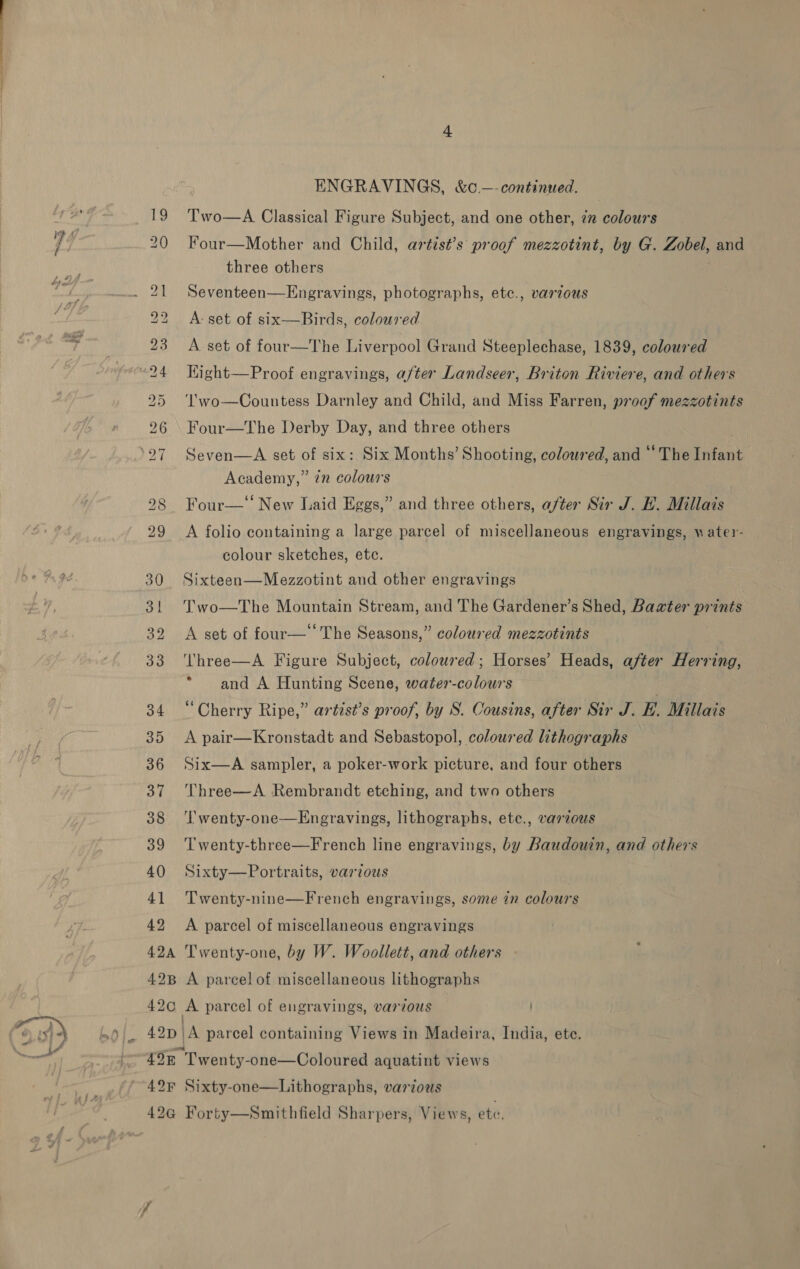 4
ENGRAVINGS, &c.—continued.
19 Two—A Classical Figure Subject, and one other, in colours
20 Four—Mother and Child, artist's proof mezzotint, by G. Zobel, and
three others
21 Seventeen—Engravings, photographs, etc., various
22 A set of six—Birds, coloured
23 A set of four—The Liverpool Grand Steeplechase, 1839, coloured
24 Eight—Proof engravings, after Landseer, Briton Riviere, and others
25 Two—Countess Darnley and Child, and Miss Farren, proof mezzotints
26 Four—The Derby Day, and three others
27 Seven—A set of six: Six Months' Shooting, coloured, and "The Infant
Academy," in colours
28 Four—"New Laid Eggs," and three others, after Sir J. E. Millais
29 A folio containing a large parcel of miscellaneous engravings, water-
colour sketches, etc.
30 Sixteen—Mezzotint and other engravings
31 Two—The Mountain Stream, and The Gardener's Shed, Baxter prints
32 A set of four—"The Seasons," coloured mezzotints
33 Three—A Figure Subject, coloured; Horses' Heads, after Herring,
and A Hunting Scene, water-colours
34 "Cherry Ripe," artist's proof, by S. Cousins, after Sir J. E. Millais
35 A pair—Kronstadt and Sebastopol, coloured lithographs
36 Six—A sampler, a poker-work picture, and four others
37 Three—A Rembrandt etching, and two others
38 Twenty-one—Engravings, lithographs, etc., various
39 Twenty-three—French line engravings, by Baudouin, and others
40 Sixty—Portraits, various
41 Twenty-nine—French engravings, some in colours
42 A parcel of miscellaneous engravings
42A Twenty-one, by W. Woollett, and others
42B A parcel of miscellaneous lithographs
42C A parcel of engravings, various
42D A parcel containing Views in Madeira, India, etc.
42E Twenty-one—Coloured aquatint views
42F Sixty-one—Lithographs, various
42G Forty—Smithfield Sharpers, Views, etc.